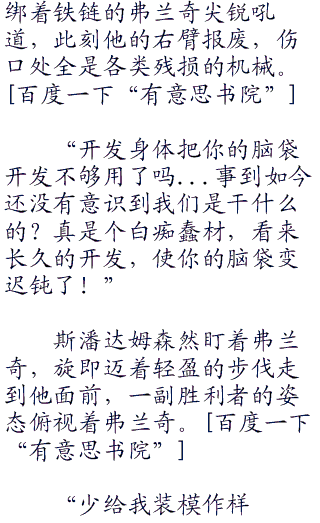 绑着铁链的弗兰奇尖锐吼
道，此刻他的右臂报废，伤
口处全是各类残损的机械。
[百度一下“有意思书院”]
“开发身体把你的脑袋
开发不够用了吗...事到如今
还没有意识到我们是干什么
的？真是个白痴蠢材，看来
长久的开发，使你的脑袋变
迟钝了！”
斯潘达姆森然盯着弗兰
奇，旋即迈着轻盈的步伐走
到他面前，一副胜利者的姿
态俯视着弗兰奇。[百度一下
“有意思书院”]
“少给我装模作样